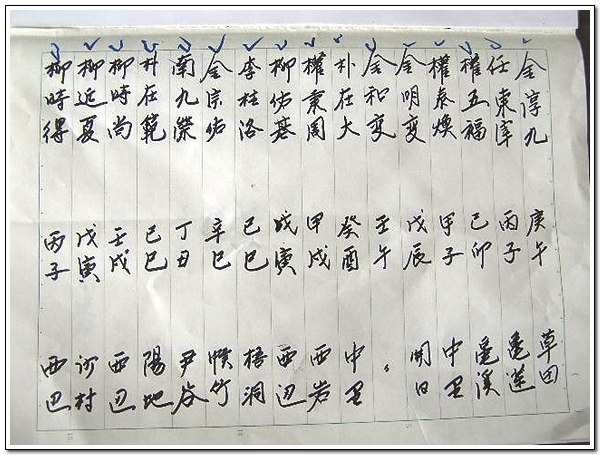 金淳九 庚午 草田
任東宰 丙子 亀蓮
權五福 己卯 亀溪
權泰煥 甲子 中里
金明變 戊辰 開日
金和變 壬午 〃
朴在大 癸酉 中里
權秉周 甲戌 西岩
柳佑基 戊寅 西辺
李桂洛 己巳 梧洞
金宗佑 辛巳 竹
南九榮 丁丑 尹谷
朴在範 己巳 陽地
柳時尚 壬戌 西辺
柳近夏 戊寅 河村
柳時得 丙子 西巴